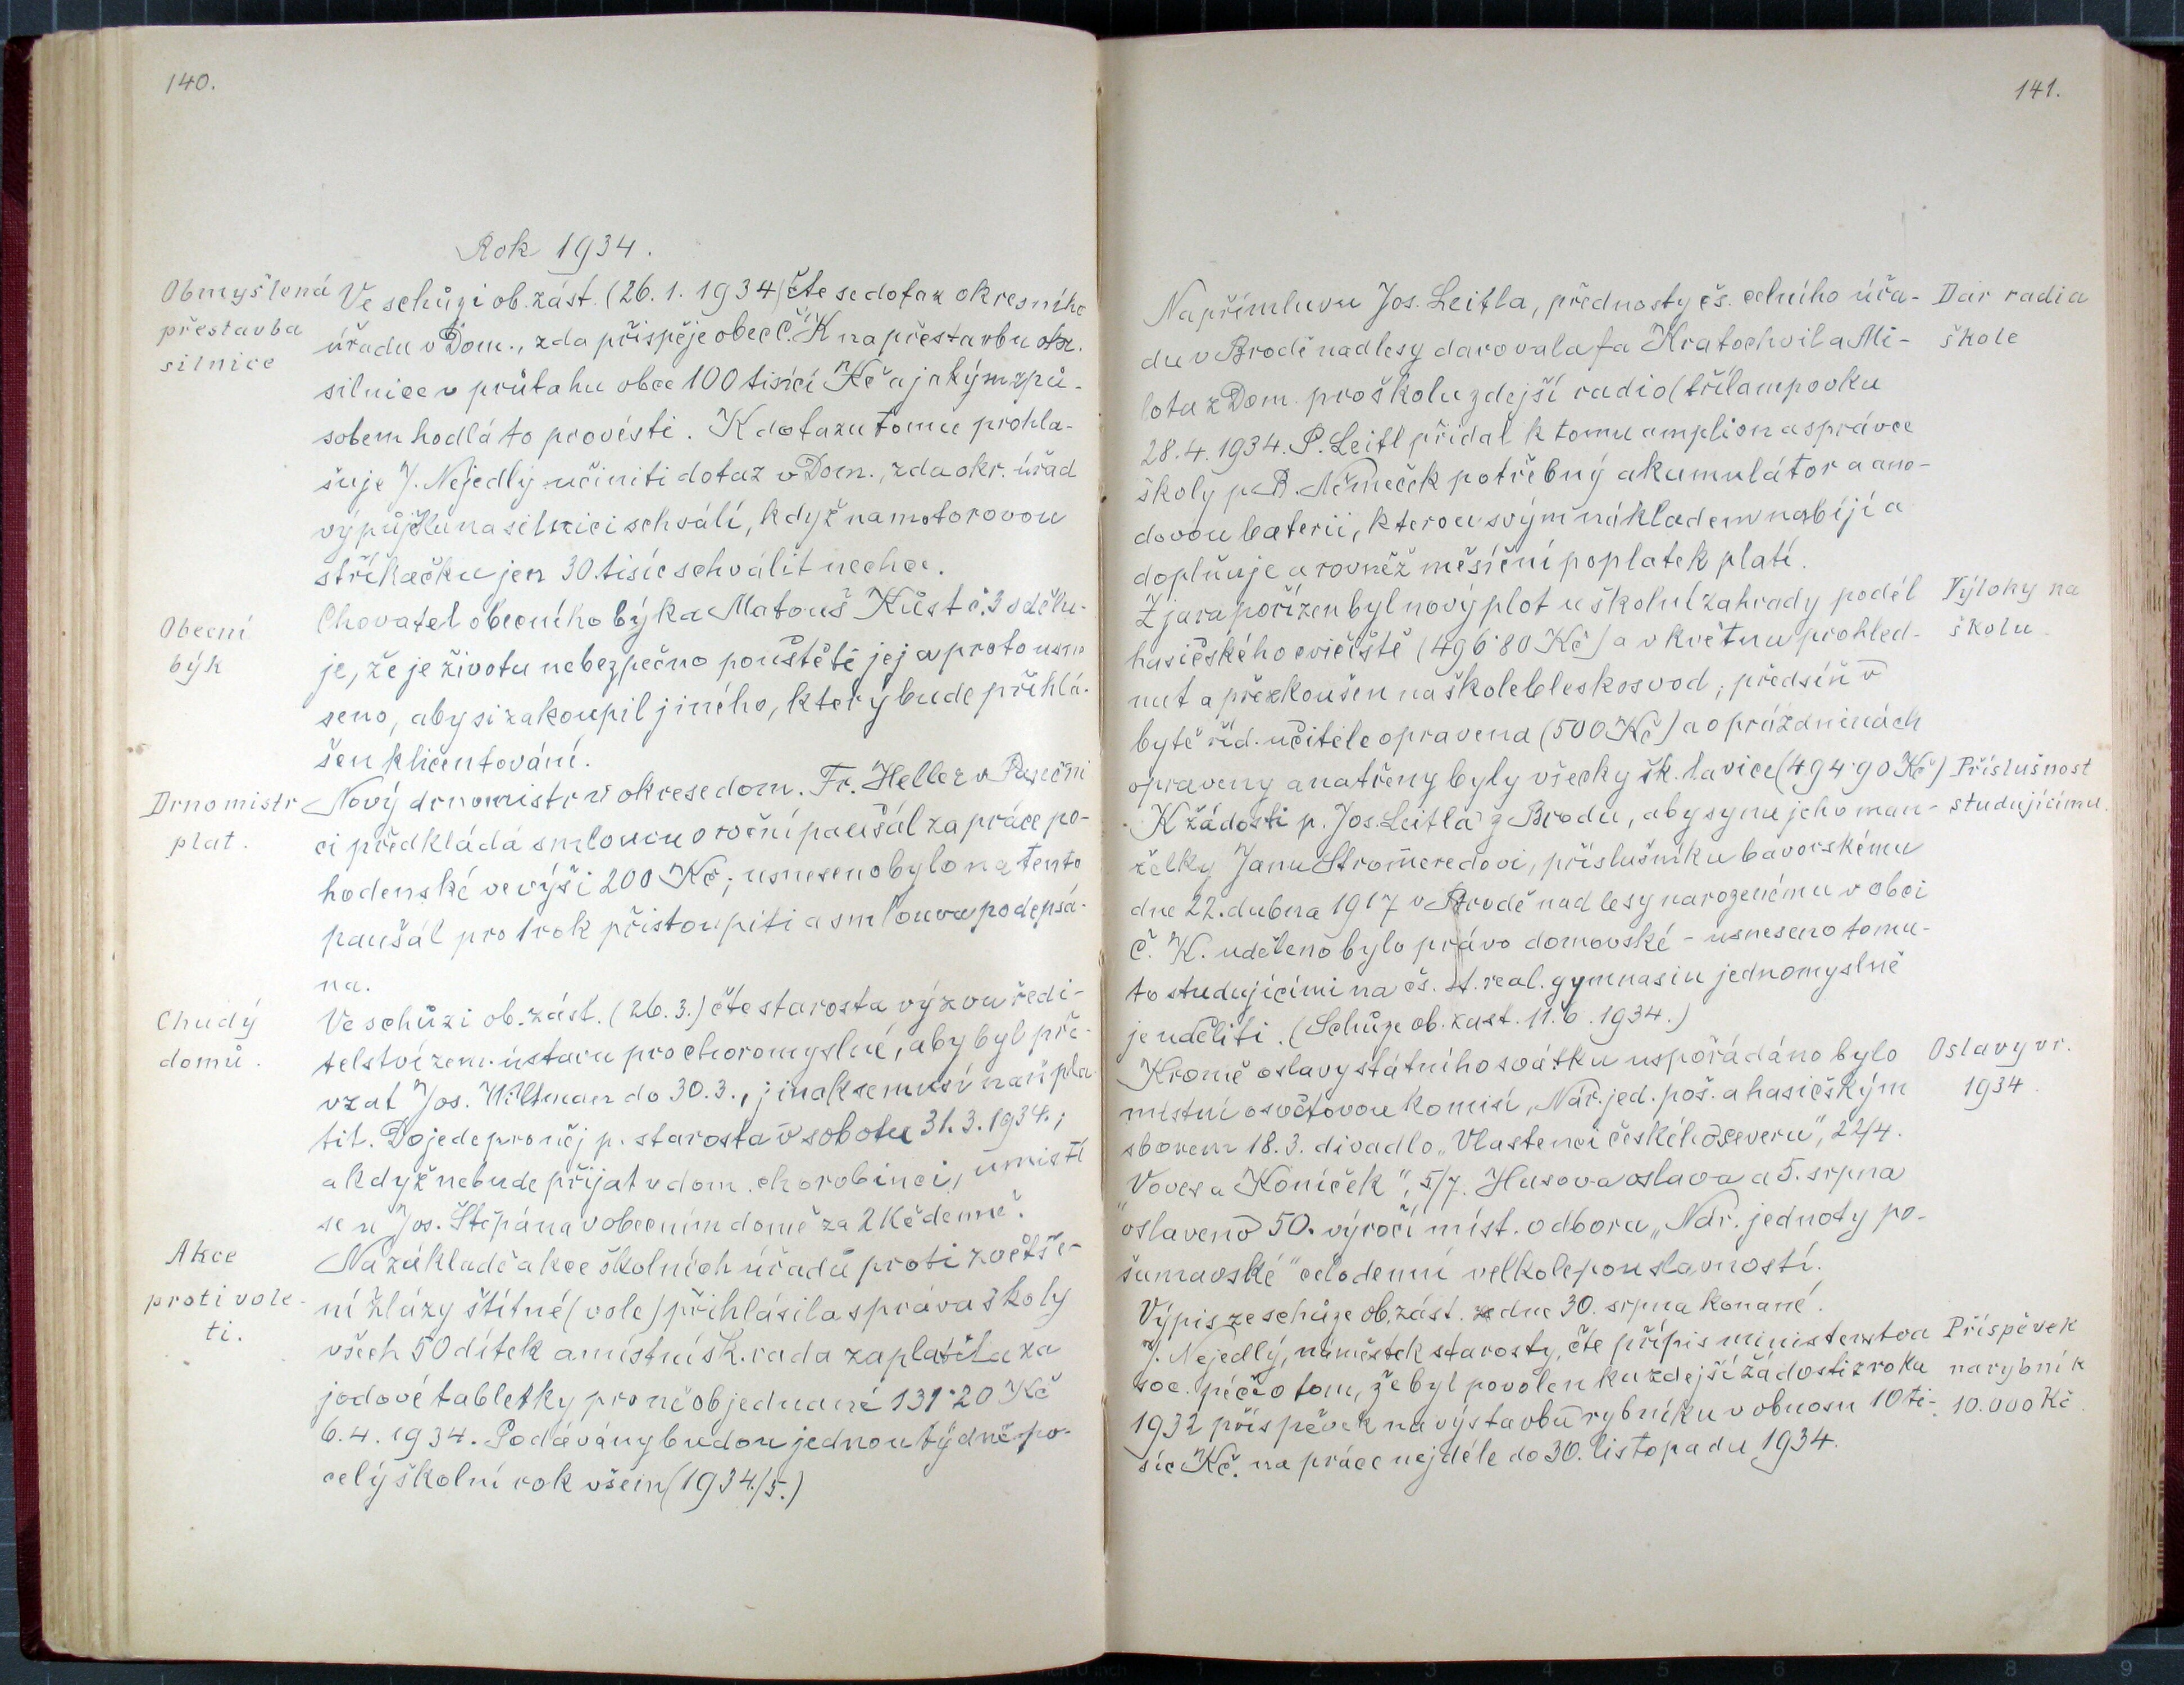 140.
Rok 1934.
Obmyšlená
přestavba
silnice
Ve schůzi ob. zást. (26. 1. 1934) čte se dotaz okresního
úřadu v Dom., zda přispěje obec Č. K na přestavbu okr.
silnice v průtahu obce 100 tisíci Kč a jakým způ-
sobem hodlá to provésti. K dotazu tomu prohla-
šuje J. Nejedlý učiniti dotaz v Dom., zda okr. úřad
výpůjčku na silnici schválí, když na motorovou
stříkačku jen 30 tisíc schválit nechce.
Obecní
býk
Chovatel obecního býka Matouš Küst č. 3 sdělu-
je, že je životu nebezpečno pouštěti jej a proto usne
seno, aby si zakoupil jiného, který bude přihlá-
šen k licentování.
Drnomistr
plat.
Nový drnomistr v okrese dom. Fr. Heller v Pasečni
ci předkládá smlouvu o roční paušál za práce po-
hodenské ve výši 200 Kč; usneseno bylo na tento
paušál pro 1 rok přistoupiti a smlouva podepsá-
na.
Chudý
domů.
Ve schůzi ob. zást. (26. 3.) čte starosta výzvu ředi-
telství zem. ústavu pro choromyslné, aby byl pře-
vzat Jos. Willman do 30. 3., jinak se musí naň pla
tit. Dojede pro něj p. starosta v sobotu 31. 3. 1934.,
a když nebude přijat v dom. chorobinci, umístí
se u Jos. Štěpána v obecním domě za 2 Kč denně.
Akce
proti vole-
ti.
Na základě akce školních úřadů proti zvětše-
ní žlázy štítné (vole) přihlásila správa školy
všech 50 dítek a místní šk. rada zaplatila za
jodové tabletky pro ně objednané 131·20 Kč
6. 4. 1934. Podávány budou jednou týdně po
celý školní rok všem (1934/5.)
141.
Na přímluvu Jos. Leitla, přednosty čs. celního úřa-
du v Brodě nad lesy darovala fa Kratochvil a Mi-
lota z Dom. pro školu zdejší radio (třílampovku
28. 4. 1934. P. Leitl přidal k tomu amplion a správce
školy p. B. Němeček potřebný akumulátor a ano-
dovou baterii, kterou svým nákladem nabíjí a
doplňuje a rovněž měsíční poplatek platí.
Dar radia
škole
Z jara pořízen byl nový plot u školní zahrady podél
hasičského cvičiště (496·80 Kč) a v květnu prohled-
nut a přezkoušen na škole bleskosvod; předsíň v
bytě říd. učitele opravena (500 Kč) a o prázdninách
opraveny a natřeny byly všecky šk. lavice (494·90 Kč)
Výlohy na
školu
K žádosti p. Jos. Leitla z Brodu, aby synu jeho man-
želky Janu Stromeredovi, příslušníku bavorskému
dne 22. dubna 1917 v Brodě nad lesy narozenému v obci
Č. K. uděleno bylo právo domovské - usneseno tomu-
to studujícími na čs. st. real. gymnasiu jednomyslně
je uděliti. (Schůze ob. zast. 11. 6. 1934.)
Příslušnost
studujícímu.
Kromě oslavy státního svátku uspořádáno bylo
místní osvětovou komisí, Nár. jed. poš. a hasičským
sborem 18. 3. divadlo „Vlastenci českého severu", 22/4.
„Voves a Koníček", 5/7. Husova oslava a 5. srpna
oslaveno 50. výročí míst. odboru „Nár. jednoty po-
šumavské" celodenní velkolepou slavností.
Oslavy v r.
1934.
Výpis ze schůze ob. zást. ze dne 30. srpna konané.
J. Nejedlý, náměstek starosty, čte přípis ministerstva
soc. péče o tom, že byl povolen ku zdejší žádosti z roku
1932 příspěvek na výstavbu rybníku v obnosu 10 ti-
síc Kč. na práce nejdéle do 30. listopadu 1934.
Příspěvek
na rybník
10.000 Kč.